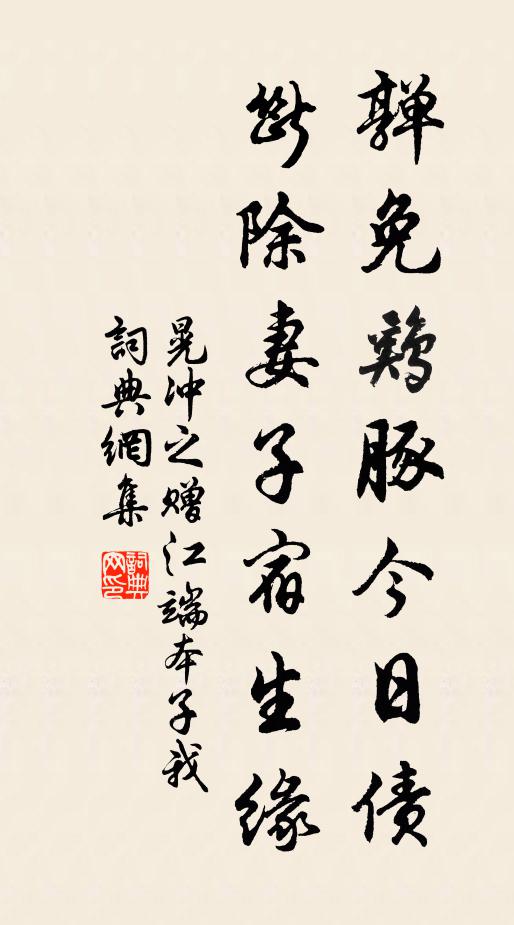 嚲免鷄豚今日債
斷除妻子宿生緣
晁冲之赠江端本子我
詞典網集
詞典网印